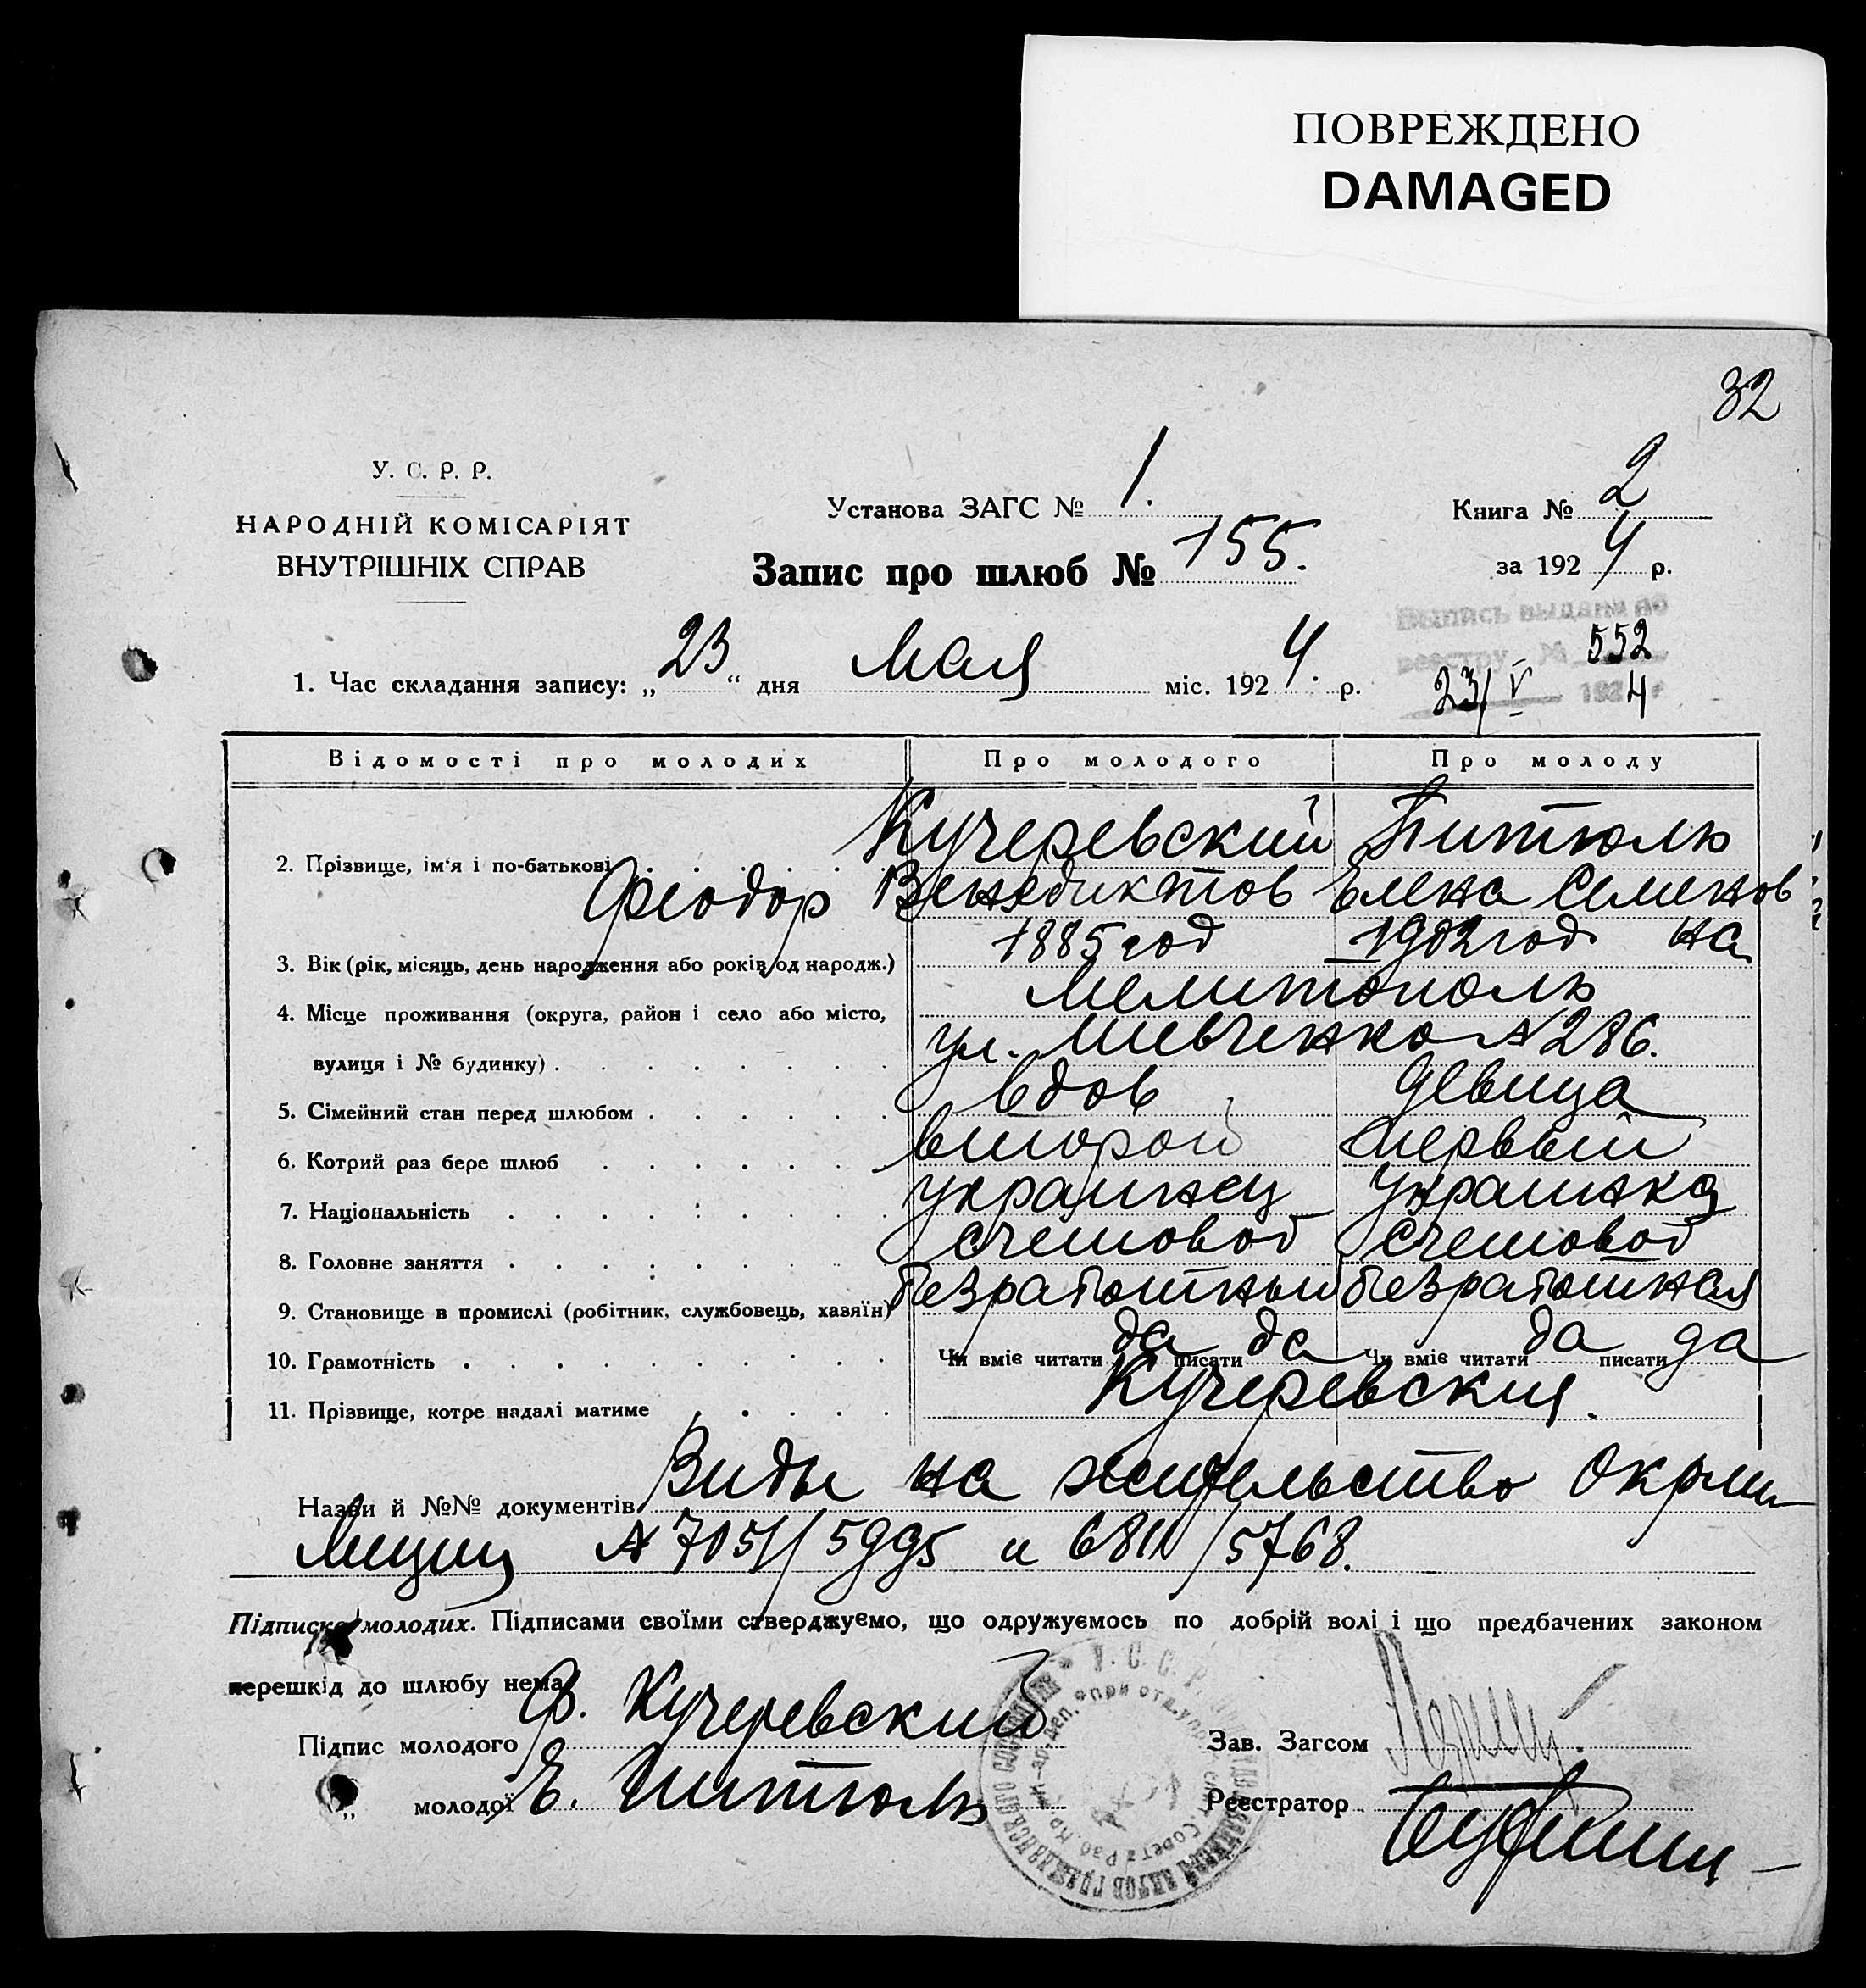 ПОВРЕЖДЕНО
DAMAGED
32
У. С. Р. Р.
НАРОДНІЙ КОМІСАРІЯТ
ВНУТРІШНІХ СПРАВ
Установа ЗАГС № 1.
Запис про шлюб № 155.
Книга № 2
за 1924 р.
Выпись выдана по
реестру № 552
23/V 1924 г
1. Час складання запису: „23“ дня Мая міс. 1924. р.
Відомості про молодих Про молодого Про молоду
Кучеревский Питюль
2. Прізвище, ім'я і по-батькові Феодор Венедиктов Елена Семенов
на
3. Вік (рік, місяць, день народження або років од народж.) 1885 год 1902 год
4. Місце проживання (округа, район і село або місто, Мелитополь
вулиця і № будинку) ул. Шевченко № 286.
5. Сімейний стан перед шлюбом вдов девица
6. Котрий раз бере шлюб второй первый
7. Національність украинец украинка
8. Головне заняття счетовод счетовод
9. Становище в промислі (робітник, службовець, хазяїн) безработный безработная
10. Грамотність Чи вміє читати да писати да Чи вміє читати да писати да
11. Прізвище, котре надалі матиме Кучеревския.
Назви й №№ документів Виды на жительство Окрми
лиции № 7051/5995 и 6811/5768.
Підписка молодих. Підписами своїми стверджуємо, що одружуємось по добрій волі і що предбачених законом
перешкід до шлюбу нема
Підпис молодого Ф. Кучеревский
„ молодої Е. Питюль
Зав. Загсом
Реєстратор